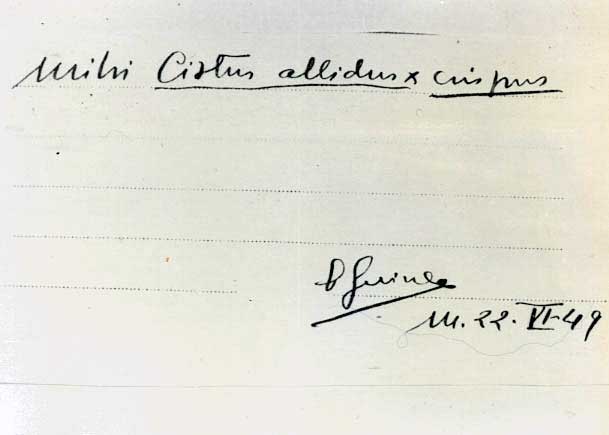 Mihi Cistus albidus x crispus
E Guinea
M. 22-VI-49